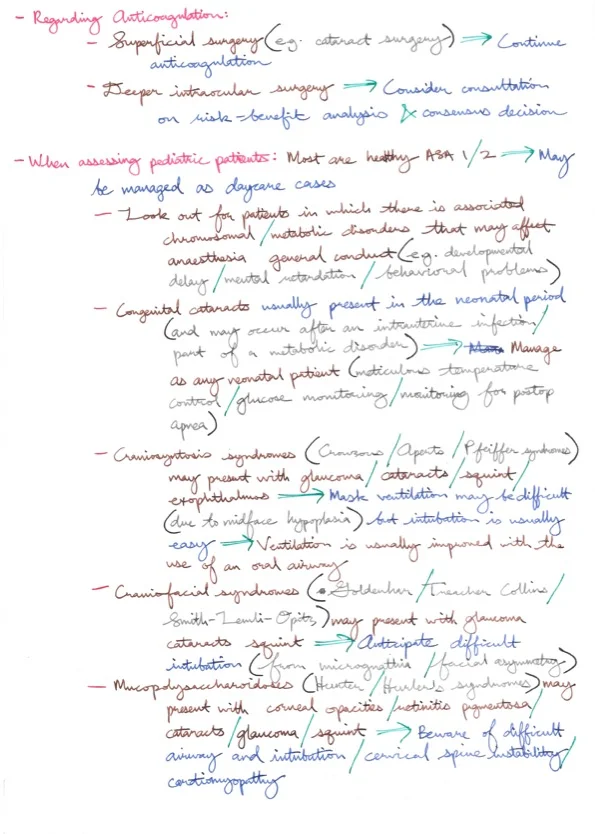 - Regarding Anticoagulation:
- Superficial surgery (e.g. cataract surgery) → Continue
anticoagulation
- Deeper intraocular surgery → Consider consultation
on risk-benefit analysis & consensus decision
- When assessing pediatric patients: Most are healthy ASA 1/2 → May
be managed as daycare cases
- Look out for patients in which there is associated
chromosomal / metabolic disorders that may affect
anaesthesia general conduct (e.g. developmental
delay / mental retardation / behavioral problems)
- Congenital cataracts usually present in the neonatal period
(and may occur after an intrauterine infection /
part of a metabolic disorder) → Manage
as any neonatal patient (meticulous temperature
control / glucose monitoring / monitoring for postop
apnea)
- Craniosyntosis syndromes (Crouzons / Aperts / Pfeiffer syndromes)
may present with glaucoma / cataracts / squint /
exophthalmos → Mask ventilation may be difficult
(due to midface hypoplasia) but intubation is usually
easy → Ventilation is usually improved with the
use of an oral airway
- Craniofacial syndromes (Goldenhar / Treacher Collins /
Smith-Lemli-Opitz) may present with glaucoma
cataracts squint → Anticipate difficult
intubation (from micrognathia / facial asymmetry)
- Mucopolysaccharidoses (Hunter / Hurler's syndromes) may
present with corneal opacities / retinitis pigmentosa /
cataracts / glaucoma / squint → Beware of difficult
airway and intubation / cervical spine instability /
cardiomyopathy